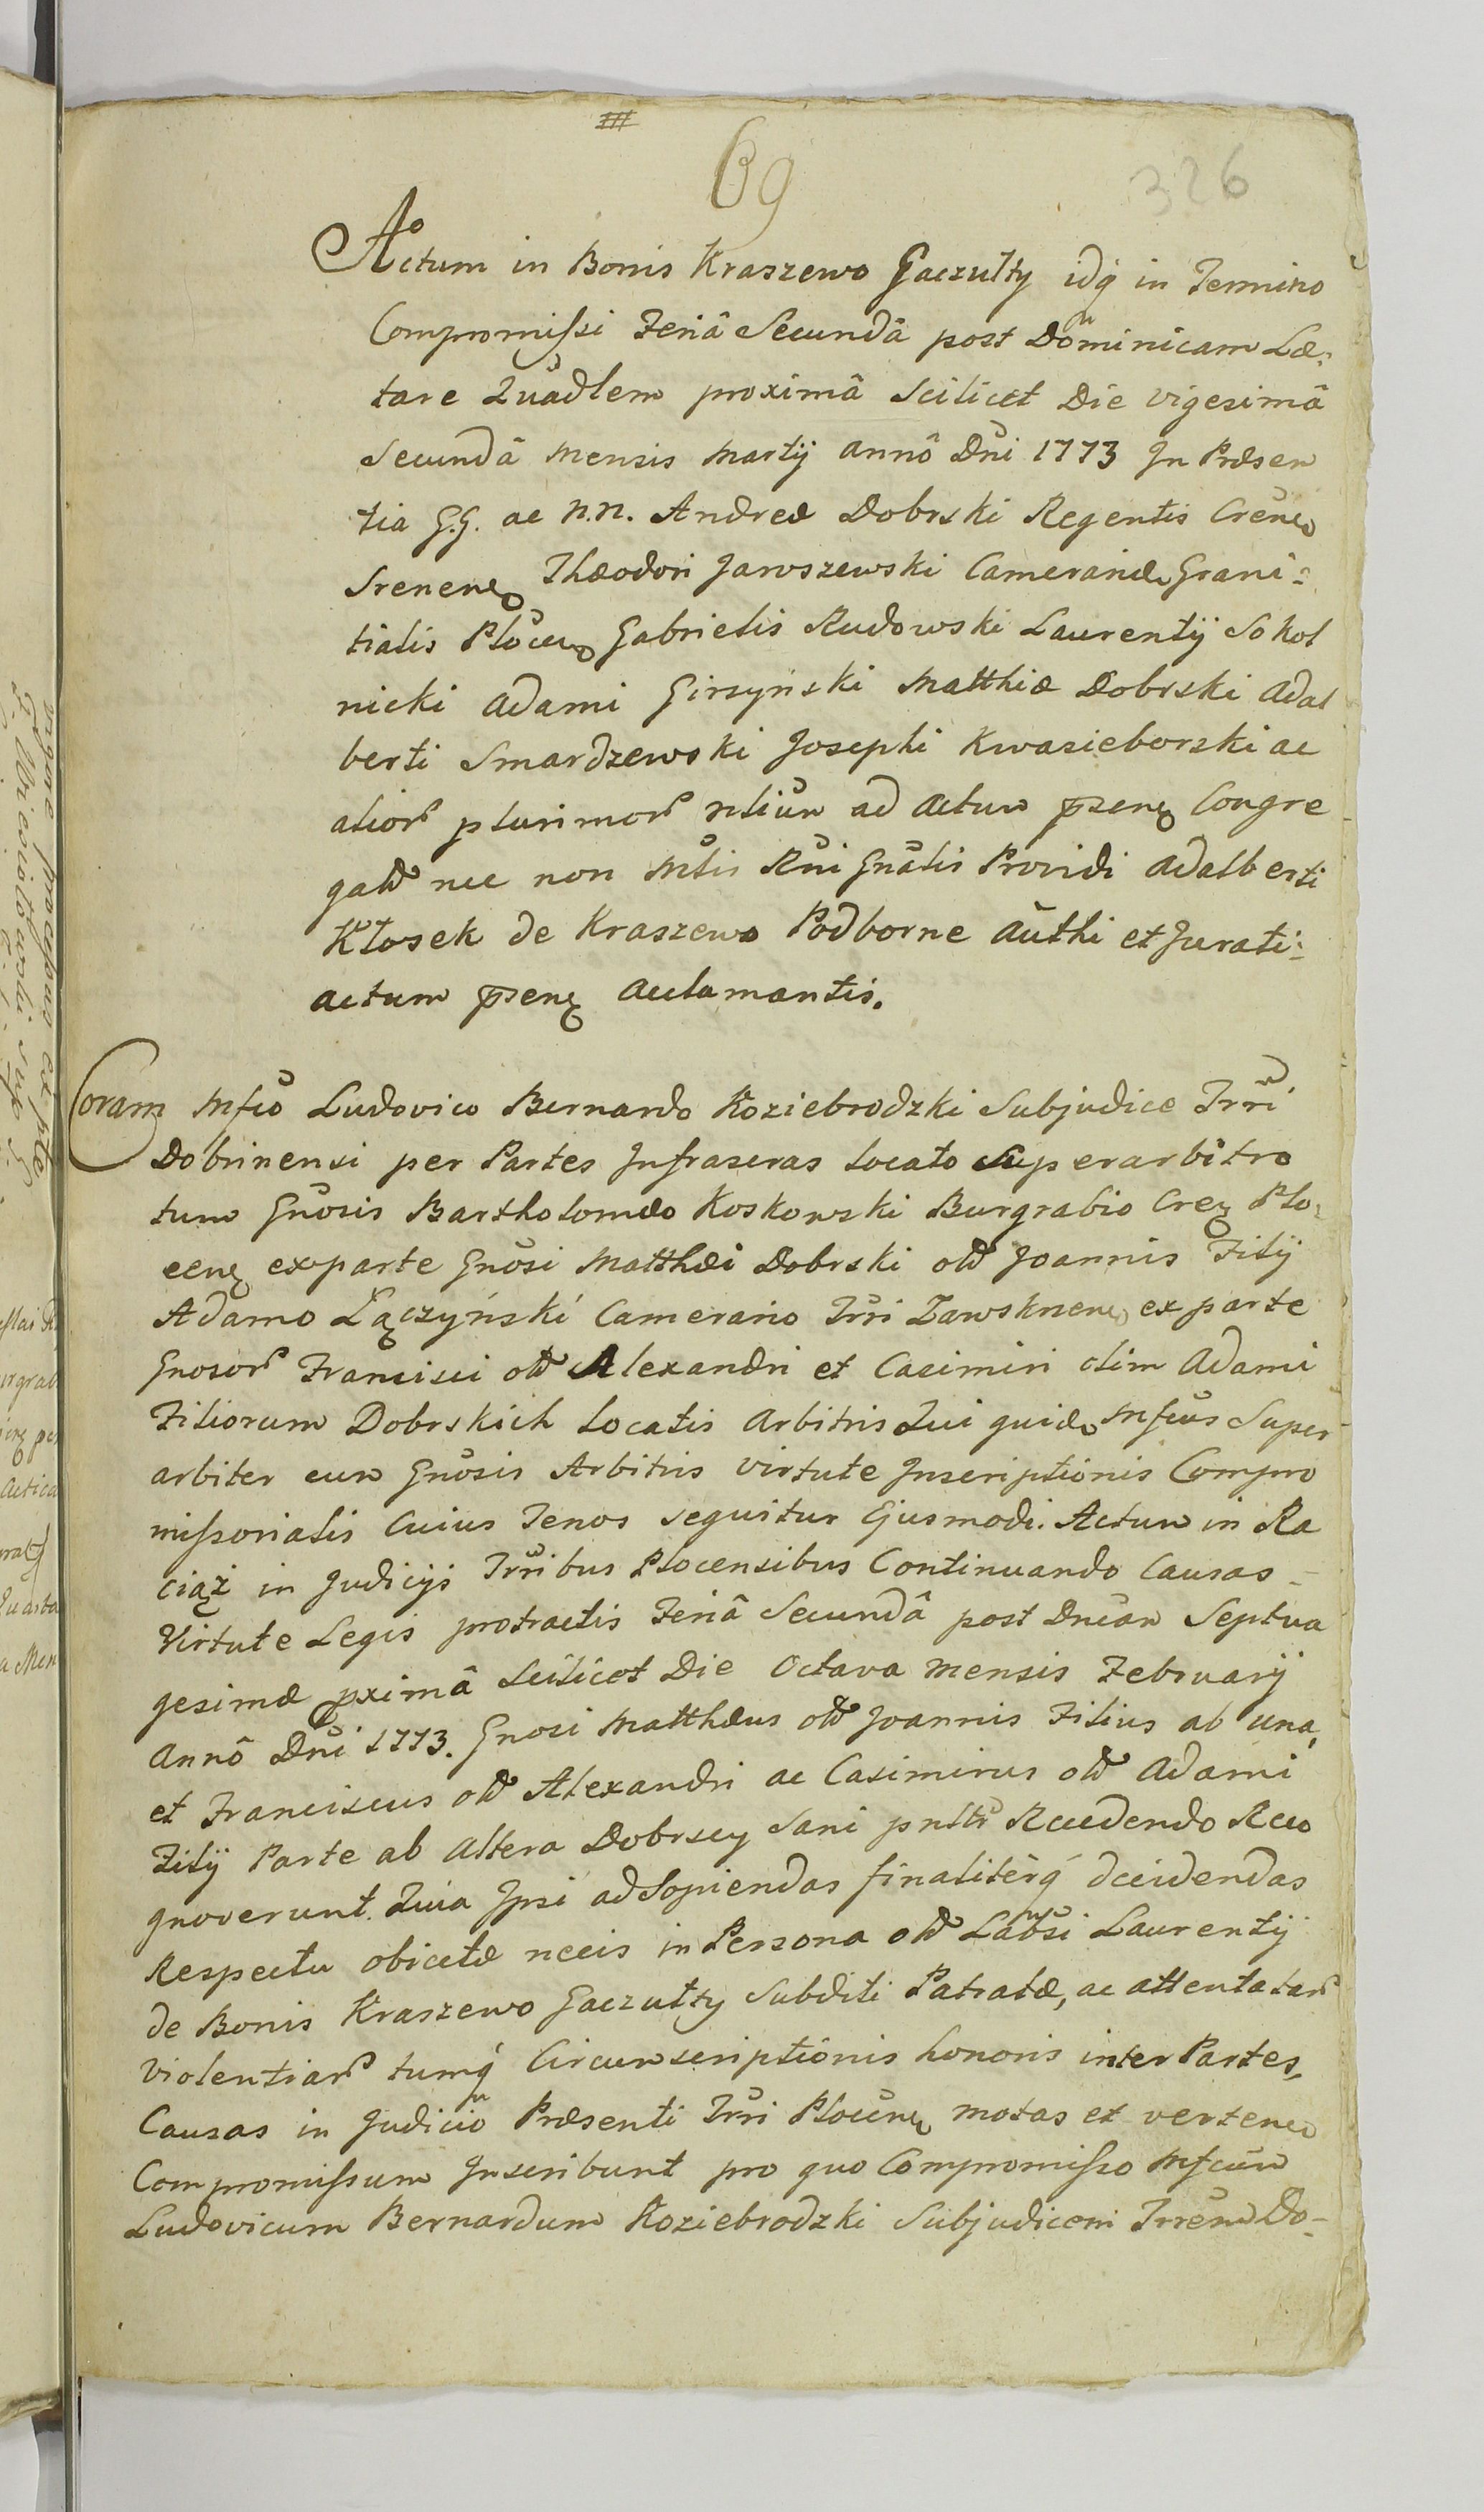 69
326
Actum in Bonis Kraszewo Gaczułty idq́ in Termino
Compromissi Feriâ Secundâ post Dominicam Læ:
tare Quadlem proximâ Scilicet Die vigesimâ
Secundâ Mensis Martij annô Dni 1773 In Præsen
tia G.G. ac N.N. Andreæ Dobrski Regentis Crenen
Srenen Theodori Jaroszewski Camerarij Grani:
tialis Plocen Gabrielis Rudowski Laurentij Sokol
nicki Adami Girzyński Matthiæ Dobrski Adal
berti Smardzewski Josephi Kwasieborski ac
alior plurimor nlium ad Actum pzen Congre
gat nec non Mtlis Rni Gnalis Providi Adalberti
Kłosek de Kraszewo Podborne Authi et Jurati:
actum pzen Acclamantis.
Coram Mfco Ludovico Bernardo Koziebrodzki Subjudice Trri
Dobrinensi per Partes Infrascras locato Superarbitro
tum Gnosis Bartholomæo Koskowski Burgrabio Cren Plo:
cen ex parte Gnosi Matthæi Dobrski olt Joannis Filij
Adamo Łączyński Camerario Trri Zawsknen ex parte
Gnosor Francisci olt Alexandri et Casimiri olim Adami
Filiorum Dobrskich locatis Arbitris Qui quidem Mfcus Super
arbiter cum Gnosis Arbitris virtute Inscriptionis Compro
missorialis Cuius Tenor sequitur Ejusmodi. Actum in Ra
ciąż in Judicijs Trribus Plocensibus Continuando Causas
Virtute Legis protractis Feriâ Secundâ post Dncam Septua
gesimæ pximâ Scilicet Die Octava Mensis Februarij
Annô Dni 1773. Gnosi Matthæus olt Joannis Filius ab una,
et Franciscus olt Alexandri ac Casimirus olt Adami
Filij Parte ab Altera Dobrscy Sani pnltr Recedendo Reco
gnoverunt. Quia Ipsi ad Sopiendas finaliterq́ decidendas
Respectu obicetæ necis in Persona olt Labsi Laurentij
de Bonis Kraszewo Gaczułty Subditi Patratæ, ac attentatar
Violentiar tumq́ Circumscriptionis honoris inter Partes,
Causas in Judicio Præsenti Trri Plocen motas et verten
Compromissum Inscribunt pro quo Compromisso Mfcum
Ludovicum Bernardum Koziebrodzki Subjudicem Trrem Do-